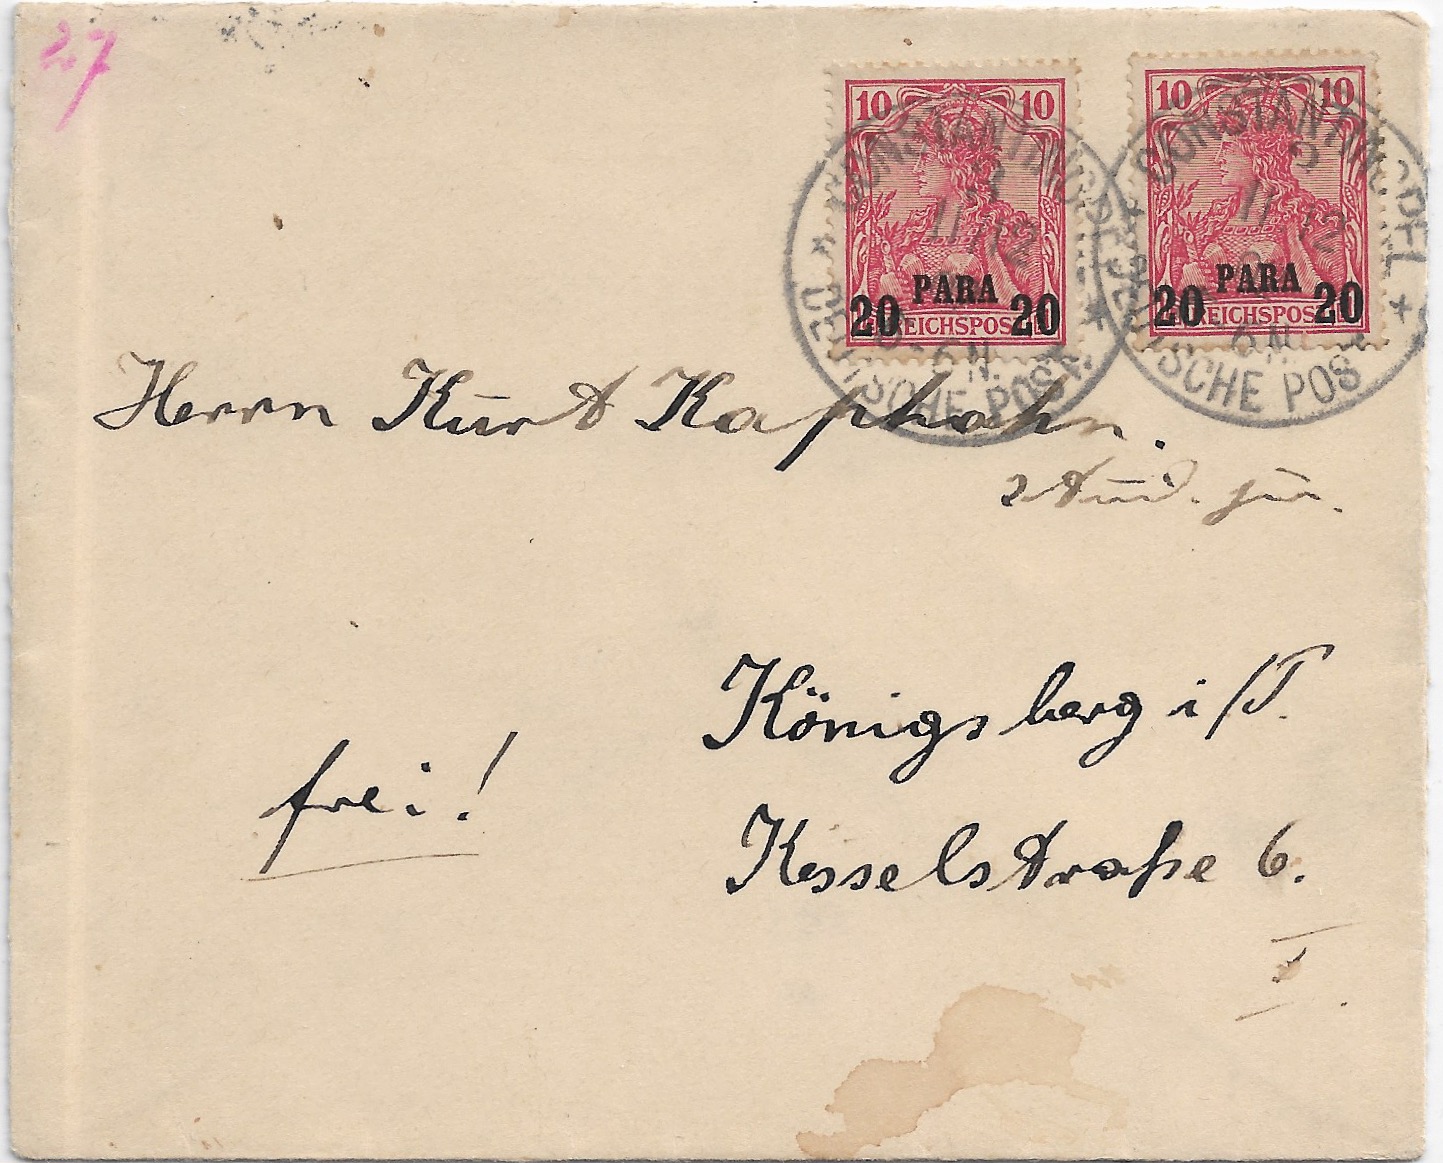 27
10 10
PARA
20 20
REICHSPOST
10 10
PARA
20 20
REICHSPOST
* CONSTANTINOPEL *
DEUTSCHE POST
* CONSTANTINOPEL *
DEUTSCHE POST
Herrn Kurt Kaphahn.
Stud. jur.
Königsberg i/P.
frei!
Kesselstraße 6.
I.